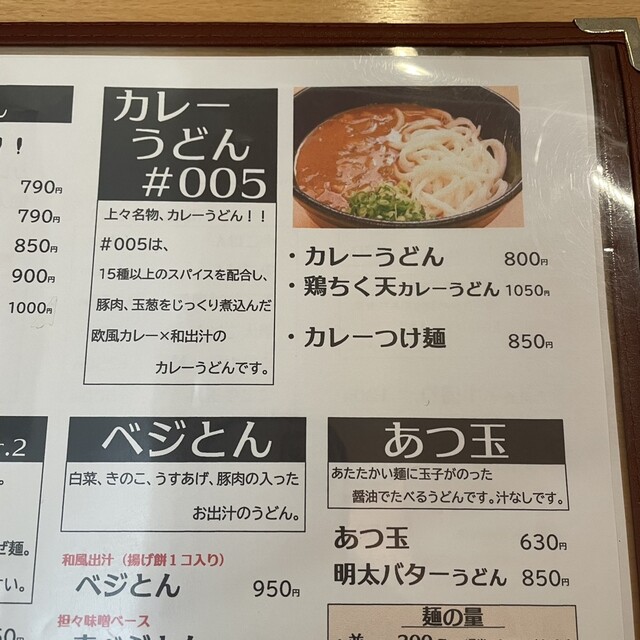 ！！
790円
790円
850円
900円
1000円
カレー
うどん
#005
上々名物、カレーうどん！！
#005は、
15種以上のスパイスを配合し、
豚肉、玉葱をじっくり煮込んだ
欧風カレー×和出汁の
カレーうどんです。
・カレーうどん 800円
・鶏ちく天カレーうどん 1050円
・カレーつけ麺 850円
.2
ぜ麺。
ベジとん
白菜、きのこ、うすあげ、豚肉の入った
お出汁のうどん。
和風出汁（揚げ餅1コ入り）
ベジとん 950円
担々味噌ベース
あつ玉
あたたかい麺に玉子がのった
醤油でたべるうどんです。汁なしです。
あつ玉 630円
明太バターうどん 850円
麺の量